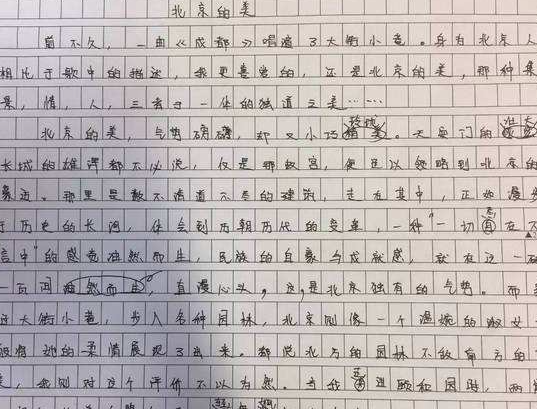 北京的美
前不久，一曲《成都》唱遍了大街小巷。身为北京人
相比于歌中的描述，我更喜爱的，还是北京的美，那种集
景，情，人，三者于一体的独道之美……
北京的美，气势磅礴，却又小巧精美。天安门的
长城的雄浑都不必说，仅是那故宫，便足以领略到北京的
豪迈。那里是数不清道不尽的建筑，走在其中，正如漫步
于历史的长河，体会到历朝历代的变革，一种"一切尽在不
言中"的感觉油然而生，民族的自豪与成就感，就在这一
一页间油然而生，直漫心头，这，是北京独有的气势。而
进大街小巷，步入各种园林，北京则像一个温婉的淑女
般将她的柔情展现了出来。都说北方的园林不敌南方的
美，我则对这个评价不以为然。当我 进颐和园时，两